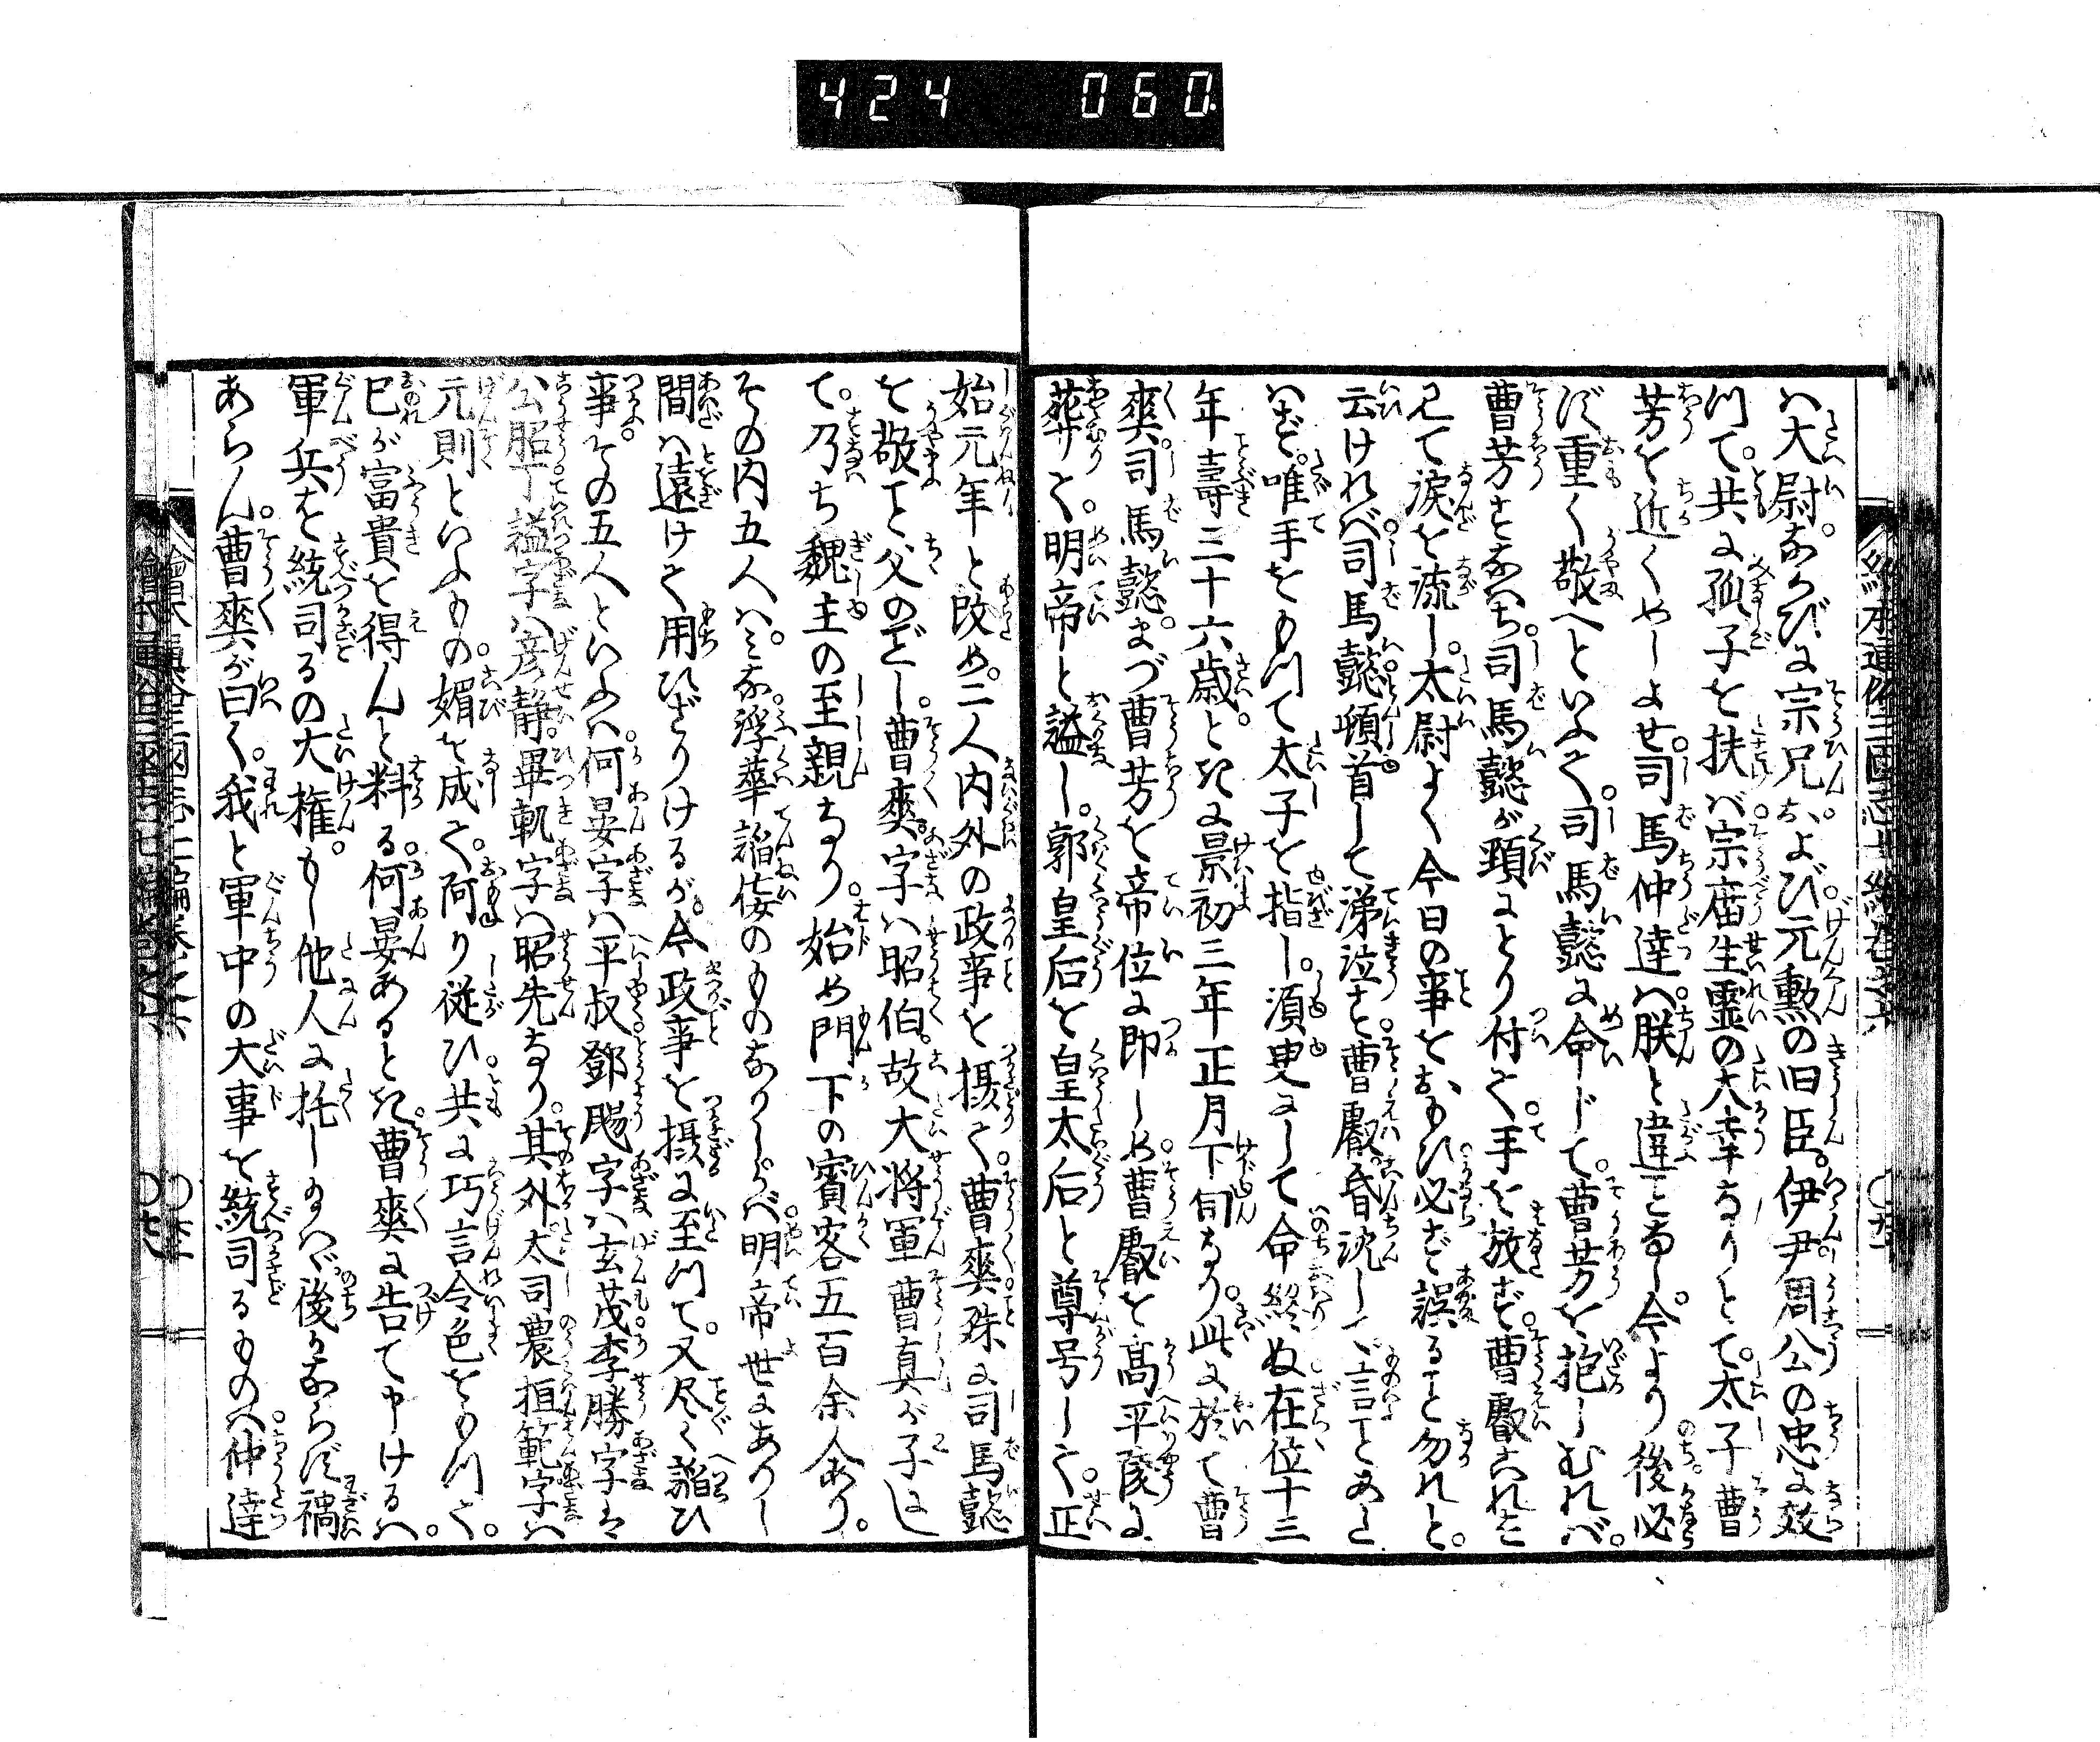 424 060
ハ大尉ならびに宗兄および元勲の旧臣。伊尹周公の忠に效
つて。共に孤子を扶バ宗庿生霊の大幸なりとて。太子曹
芳を近くめしよせ。司馬仲達ハ朕と違ことなし。今より後必
ず重く敬へといふて。司馬懿に命じて。曹芳を抱しむれバ。
曹芳すなハち司馬懿が頸にとり付て。手を放さず。曹叡これを
見て涙を流し。太尉よく今日の事をおもひ必ず誤ること勿れと。
云けれバ。司馬懿頓首して涕泣す。曹叡。昏沈して言ことあた
ハず。唯手をもつて太子を指し。須臾にして命終ぬ。在位十三
年壽三十六歳。ときに景初三年正月下旬なり。此に於て曹
爽司馬懿。まづ曹芳を帝位に即しめ。曹叡を高平陵に
葬りて。明帝と謚し。郭皇后を皇太后と尊号して。正
始元年と改め。二人内外の政事を摂て。曹爽殊に司馬懿
を敬こと父のごとし。曹爽。字ハ昭伯。故大将軍曹真が子にし
て。乃ち魏主の至親なり。始め門下の賓客五百余人あり。
その内五人ハ。みな浮華謟佞のものなりしかバ。明帝世にありし
間ハ遠けて用ひざりけるが。今政事を摂に至つて。又尽く謟ひ
事。その五人といふハ。何晏字ハ平叔鄧颺字ハ玄茂李勝字ハ
公昭丁謐字ハ彦静。畢軌字ハ昭先なり。其外太司農桓範字ハ
元則といふもの。媚を成て。阿り従ひ。共に巧言令色をもつて。
己が富貴を得んと料る。何晏あるとき。曹爽に告て申けるハ。
軍兵を統司るの大権。もし他人に托し玉ハヾ後かならず禍
あらん。曹爽が曰く。我と軍中の大事を統司るものハ。仲達